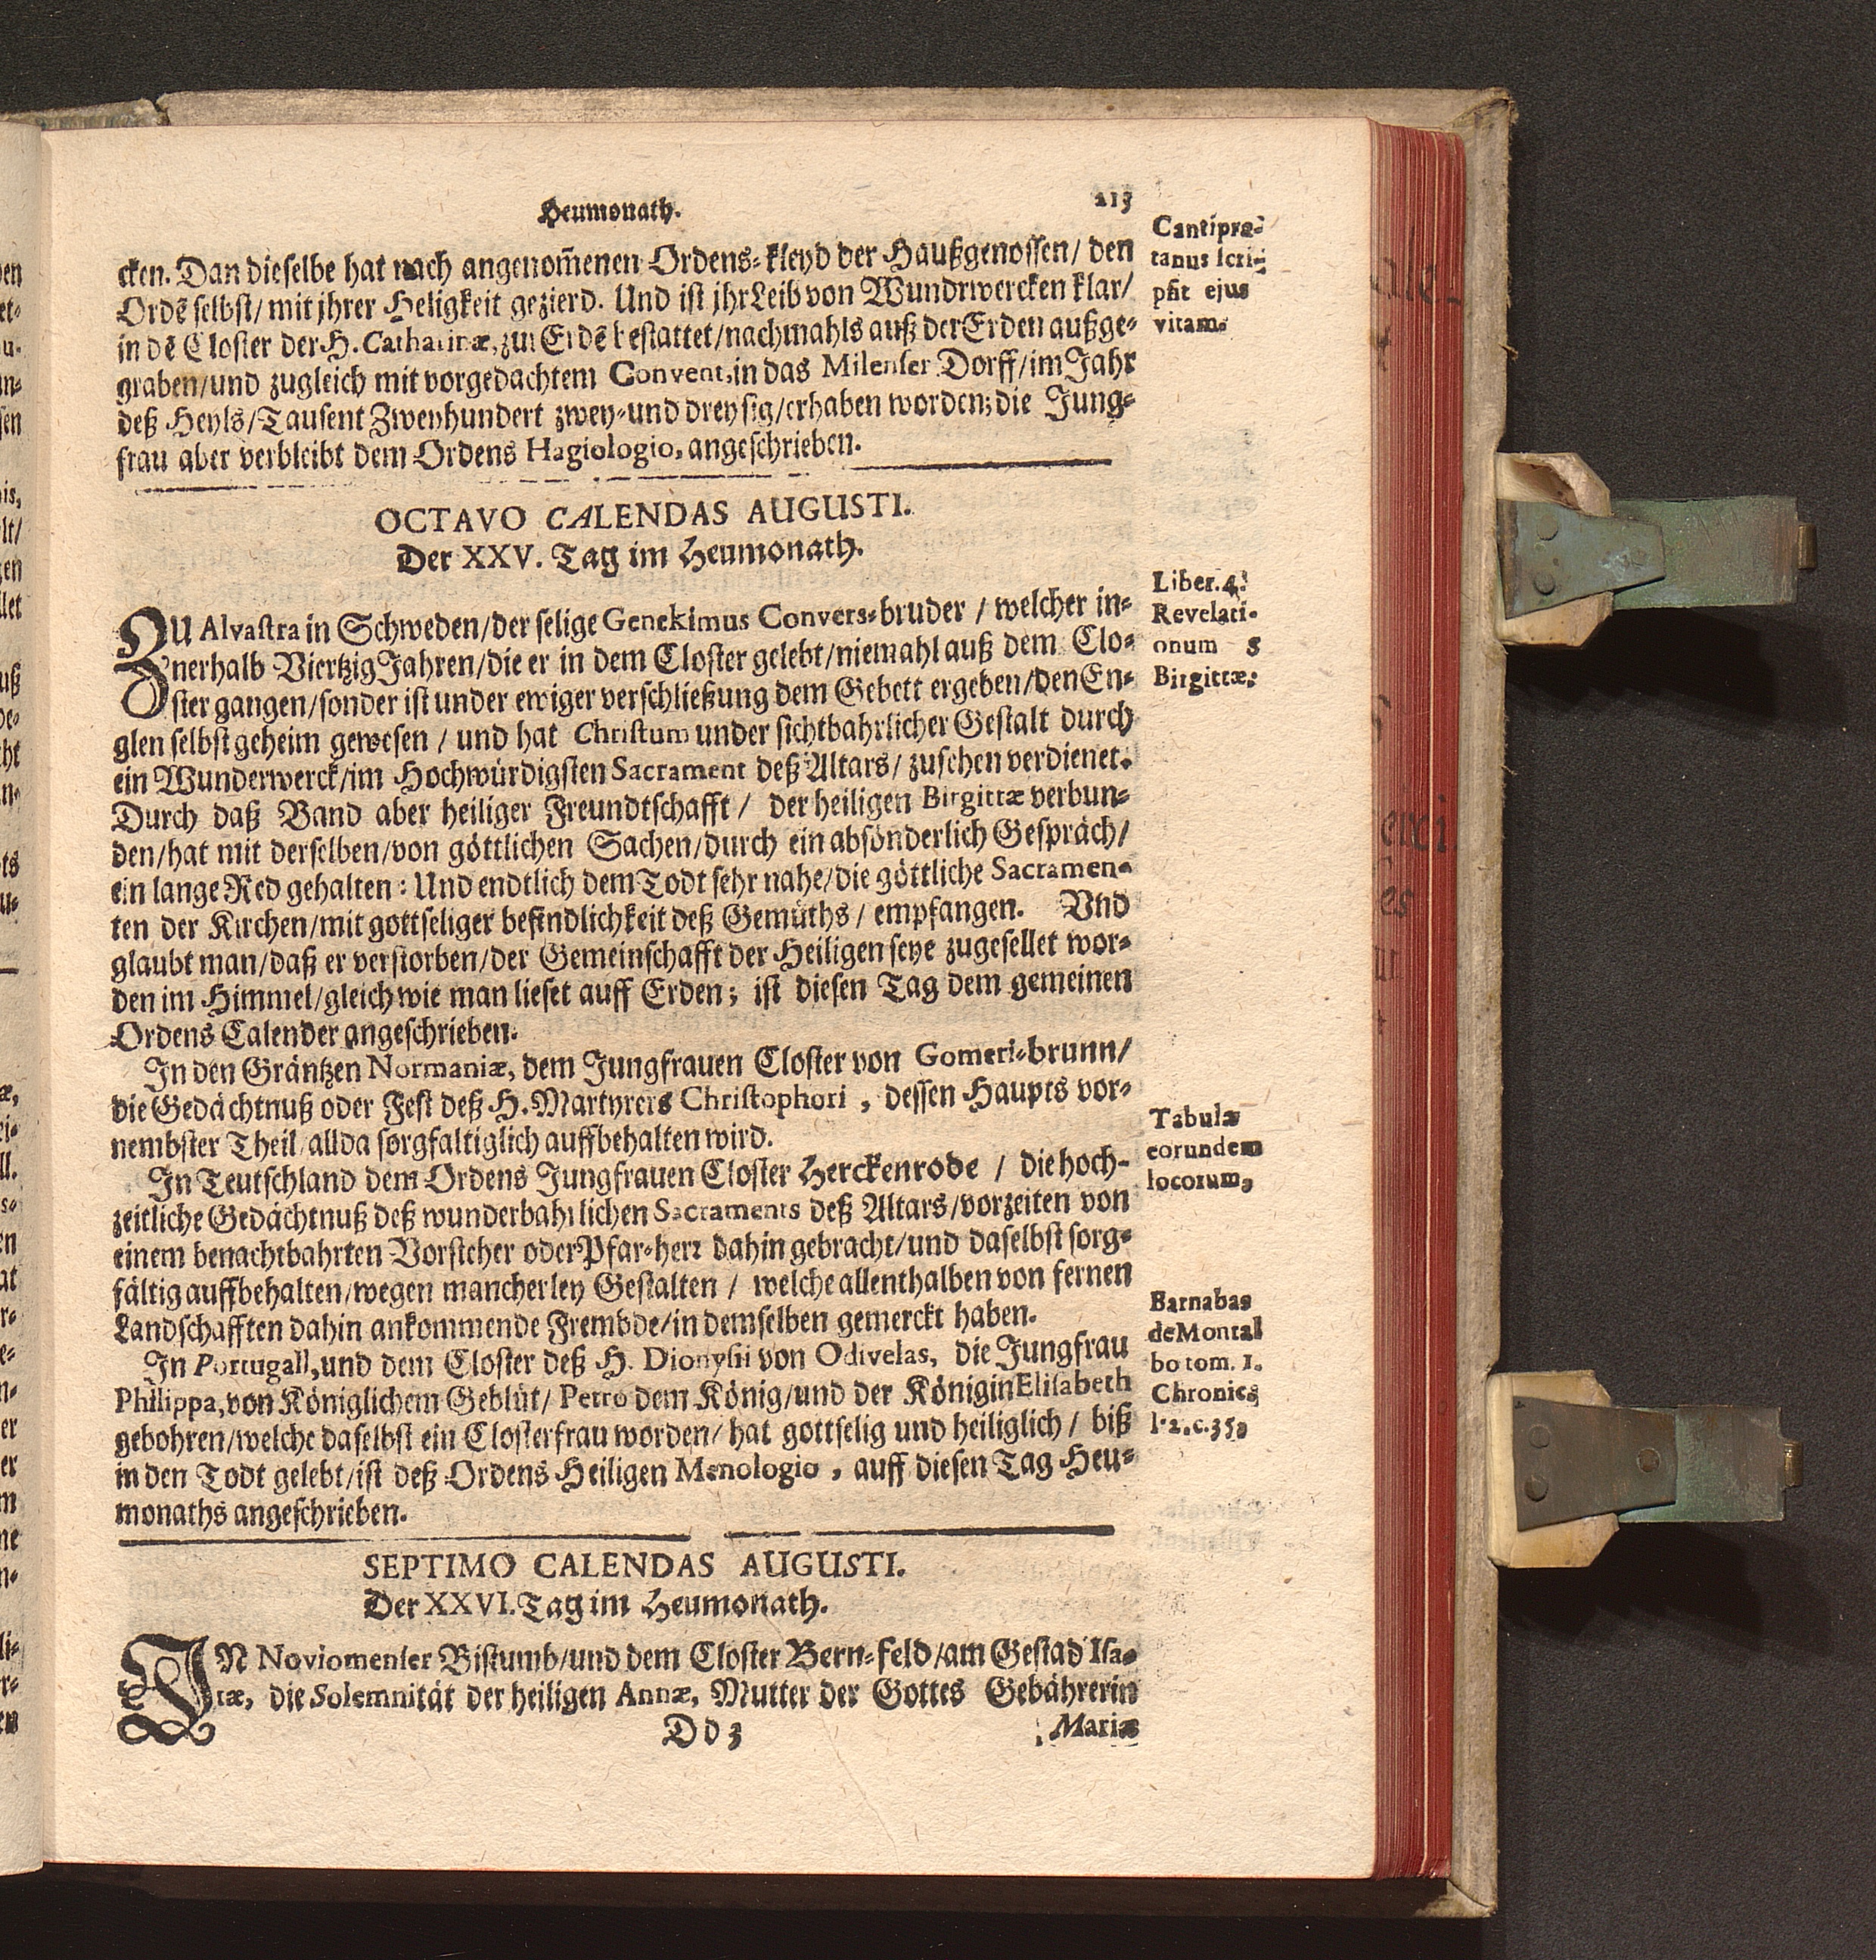 Heumonath. 213
cken. Dan dieselbe hat nach angenom̃enen Ordens-kleyd der Haußgenossen/ den
Ordẽ selbst/ mit jhrer Heligkeit gezierd. Und ist jhr Leib von Wundrwercken klar/
in dẽ Closter der H. Catharinæ, zur Erdẽ bestattet/nachmahls auß der Erden außge-
graben/und zugleich mit vorgedachtem Convent, in das Milenser Dorff/im Jahr
deß Heyls/Tausent Zweyhundert zwey-und dreysig/erhaben worden; die Jung-
frau aber verbleibt dem Ordens Hagiologio, angeschrieben.
Cantipra-
tanus scri-
psit ejus
vitam.
OCTAVO CALENDAS AUGUSTI.
Der XXV. Tag im Heumonath.
ZU Alvastra in Schweden/der selige Genekimus Convers-bruder / welcher in-
nerhalb Viertzig Jahren/die er in dem Closter gelebt/niemahl auß dem Clo-
ster gangen/sonder ist under ewiger verschließung dem Gebett ergeben/den En-
glen selbst geheim gewesen / und hat Christum under sichtbahrlicher Gestalt durch
ein Wunderwerck/im Hochwürdigsten Sacrament deß Altars/ zusehen verdienet.
Durch daß Band aber heiliger Freundtschafft / der heiligen Birgittæ verbun-
den/hat mit derselben/von göttlichen Sachen/durch ein absönderlich Gespräch/
ein lange Red gehalten: Und endtlich dem Todt sehr nahe/die göttliche Sacramen-
ten der Kirchen/mit gottseliger befindlichkeit deß Gemüths / empfangen. Vnd
glaubt man/daß er verstorben/der Gemeinschafft der Heiligen seye zugesellet wor-
den im Himmel/gleich wie man lieset auff Erden; ist diesen Tag dem gemeinen
Ordens Calender angeschrieben.
Liber. 4.
Revelati-
onum S
Birgittæ.
In den Gräntzen Normaniæ, dem Jungfrauen Closter von Gomeri-brunn/
die Gedächtnuß oder Fest deß H. Martyrers Christophori, dessen Haupts vor-
nembster Theil allda sorgfaltiglich auffbehalten wird.
In Teutschland dem Ordens Jungfrauen Closter Herckenrode / die hoch-
zeitliche Gedächtnuß deß wunderbahrlichen Sacraments deß Altars/vorzeiten von
einem benachtbahrten Vorsteher oder Pfar-herr dahin gebracht/und daselbst sorg-
fältig auffbehalten/wegen mancherley Gestalten / welche allenthalben von fernen
Landschafften dahin ankommende Frembde/in demselben gemerckt haben.
Tabulæ
eorundem
locorum,
In Portugall, und dem Closter deß H. Dionysii von Odivelas, die Jungfrau
Philippa, von Königlichem Geblüt/ Petro dem König/und der Königin Elisabeth
gebohren/welche daselbst ein Closterfrau worden/ hat gottselig und heiliglich / biß
in den Todt gelebt/ist deß Ordens Heiligen Menologio, auff diesen Tag Heu-
monaths angeschrieben.
Barnabas
de Montal
bo tom. 1.
Chronics
l. 2. c. 35,
SEPTIMO CALENDAS AUGUSTI.
Der XXVI. Tag im Heumonath.
IN Noviomenser Bistumb/und dem Closter Bern-feld/am Gestad Isa-
ræ, die Solemnität der heiligen Annæ, Mutter der Gottes Gebährerin
Dd 3 Mariæ